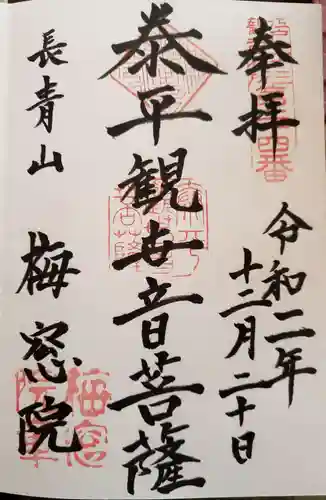 奉拝
令和二年
十二月二十日
泰平観世音菩薩
長青山
梅窓院